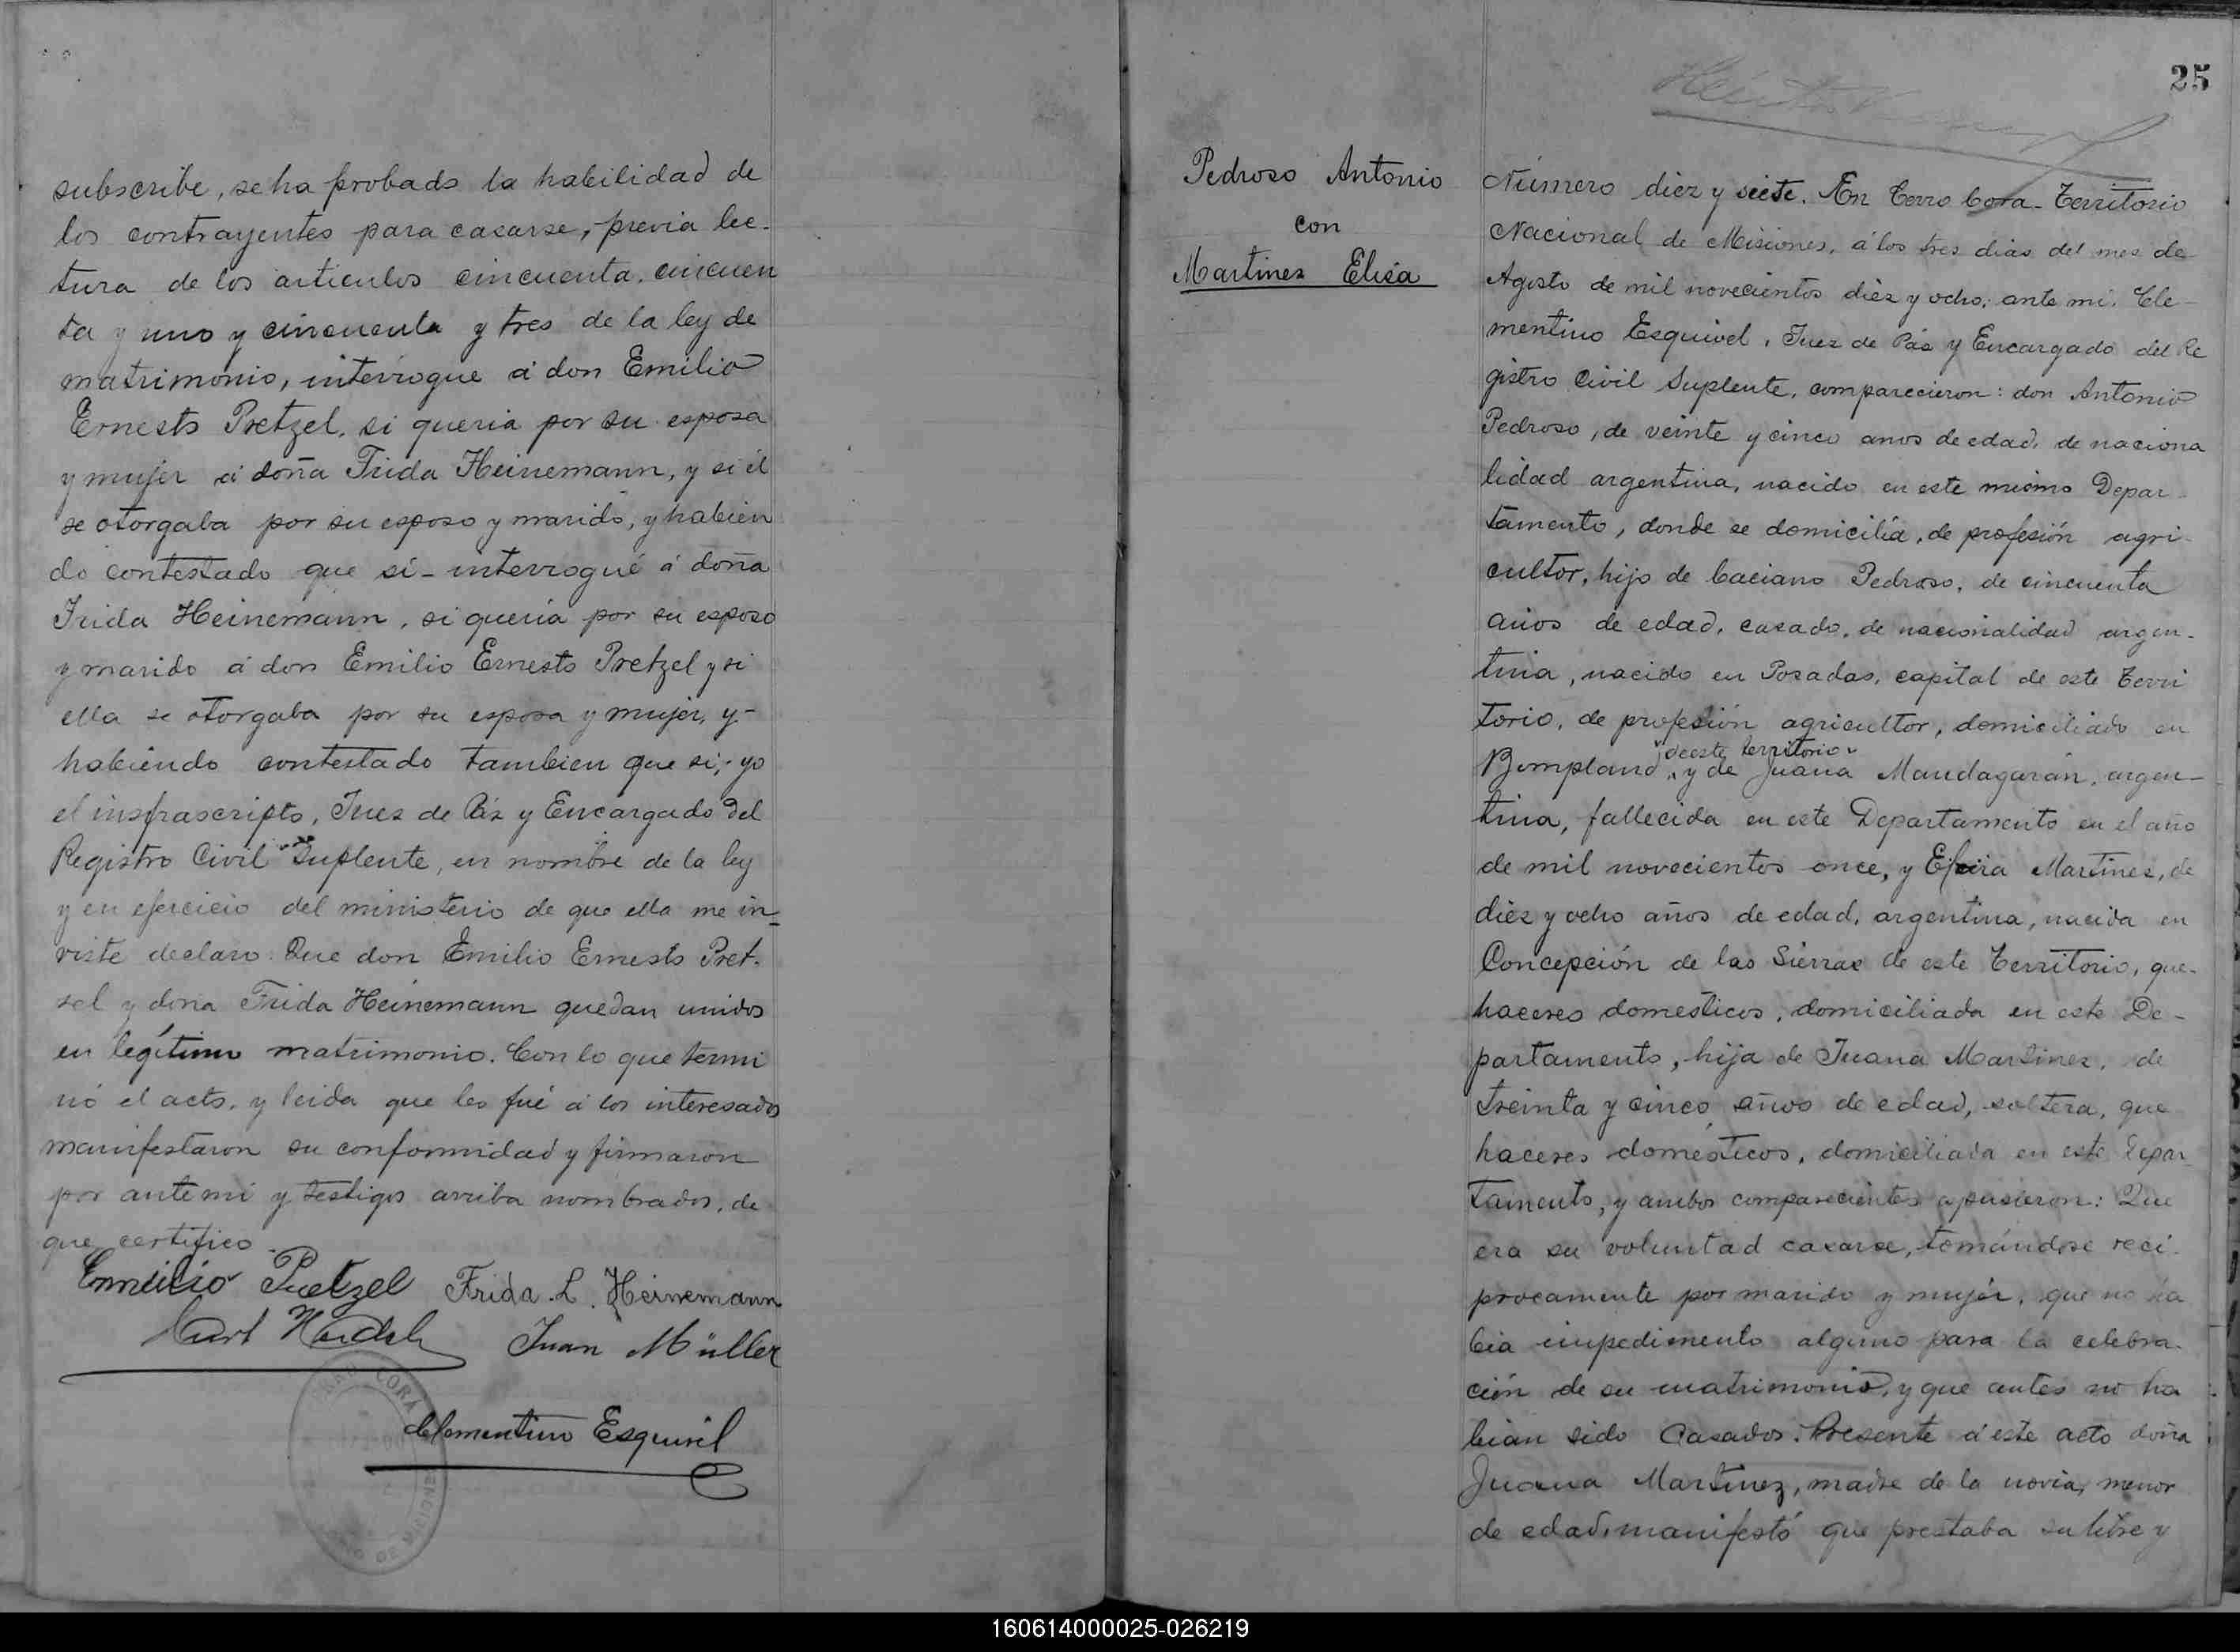 subscribe, se ha probado la habilidad de
los contrayentes para casarse, previa lec-
tura de los articulos cincuenta, cincuen
ta y uno y cincuenta y tres de la ley de
matrimonio, interrogue á don Emilio
Ernesto Pretzel, si queria por su esposa
y mujer á doña Frida Heinemann, y si él
se otorgaba por su esposo y marido, y habien
do contestado que si- interrogué á doña
Frida Heinemann, si queria por su esposo
y marido á don Emilio Ernesto Pretzel y si
ella se otorgaba por su esposa y mujer, y-
habiendo contestado tambien que si,- yo
el insfrascripto, Juez de Páz y Encargado del
Registro Civil Suplente, en nombre de la ley
y en ejercicio del ministerio de que ella me in-
viste declaro: Que don Emilio Ernesto Pret-
zel y doña Frida Heinemann quedan unidos
en legítimo matrimonio. Con lo que termi
nó el acto, y leida que les fué á los interesados
manifestaron su conformidad y firmaron
por ante mi y testigos arriba nombrados, de
que certifico.
Emilio Pretzel Frida. L. Heinemann
Curt Juan Müller
CORA
Clementino Esquivel
DE MISIONES
25
Pedroso Antonio
con
Martinez Elisa
Número diez y siete. En Cerro Cora- Territorio
Nacional de Misiones, á los tres dias del mes de
Agosto de mil novecientos diez y ocho, ante mi, Cle-
mentino Esquivel, Juez de Páz y Encargado del Re
gistro Civil Suplente, comparecieron: don Antonio
Pedroso, de veinte y cinco anos de edad, de naciona
lidad argentina, nacido en este mismo Depar-
tamento, donde se domicilia, de profesión agri-
cultor, hijo de Caciano Pedroso, de cincuenta
años de edad, casado, de nacionalidad argen-
tina, nacido en Posadas, capital de este Terri
torio, de profesión agricultor, domiciliado en
"de este territorio"
Bompland, y de Juana Mandagarán, argen-
tina, fallecida en este Departamento en el año
de mil novecientos once, y Martinez, de
diez y ocho años de edad, argentina, nacida en
Concepción de las Sierras de este Territorio, que-
haceres domesticos, domiciliada en este De-
partamento, hija de Juana Martinez, de
treinta y cinco años de edad, soltera, que
haceres domésticos, domiciliada en este Depar
tamento, y ambos comparecientes apusieron: Que
era su voluntad casarse, tomándose reci-
procamente por marido y mujer, que no ha
bia impedimento alguno para la celebra-
ción de su matrimonio, y que antes no ha
bian sido Casados. Presente á este acto doña
Juana Martinez, madre de la novia, menor
de edad, manifestó que prestaba su libre y
160614000025-026219